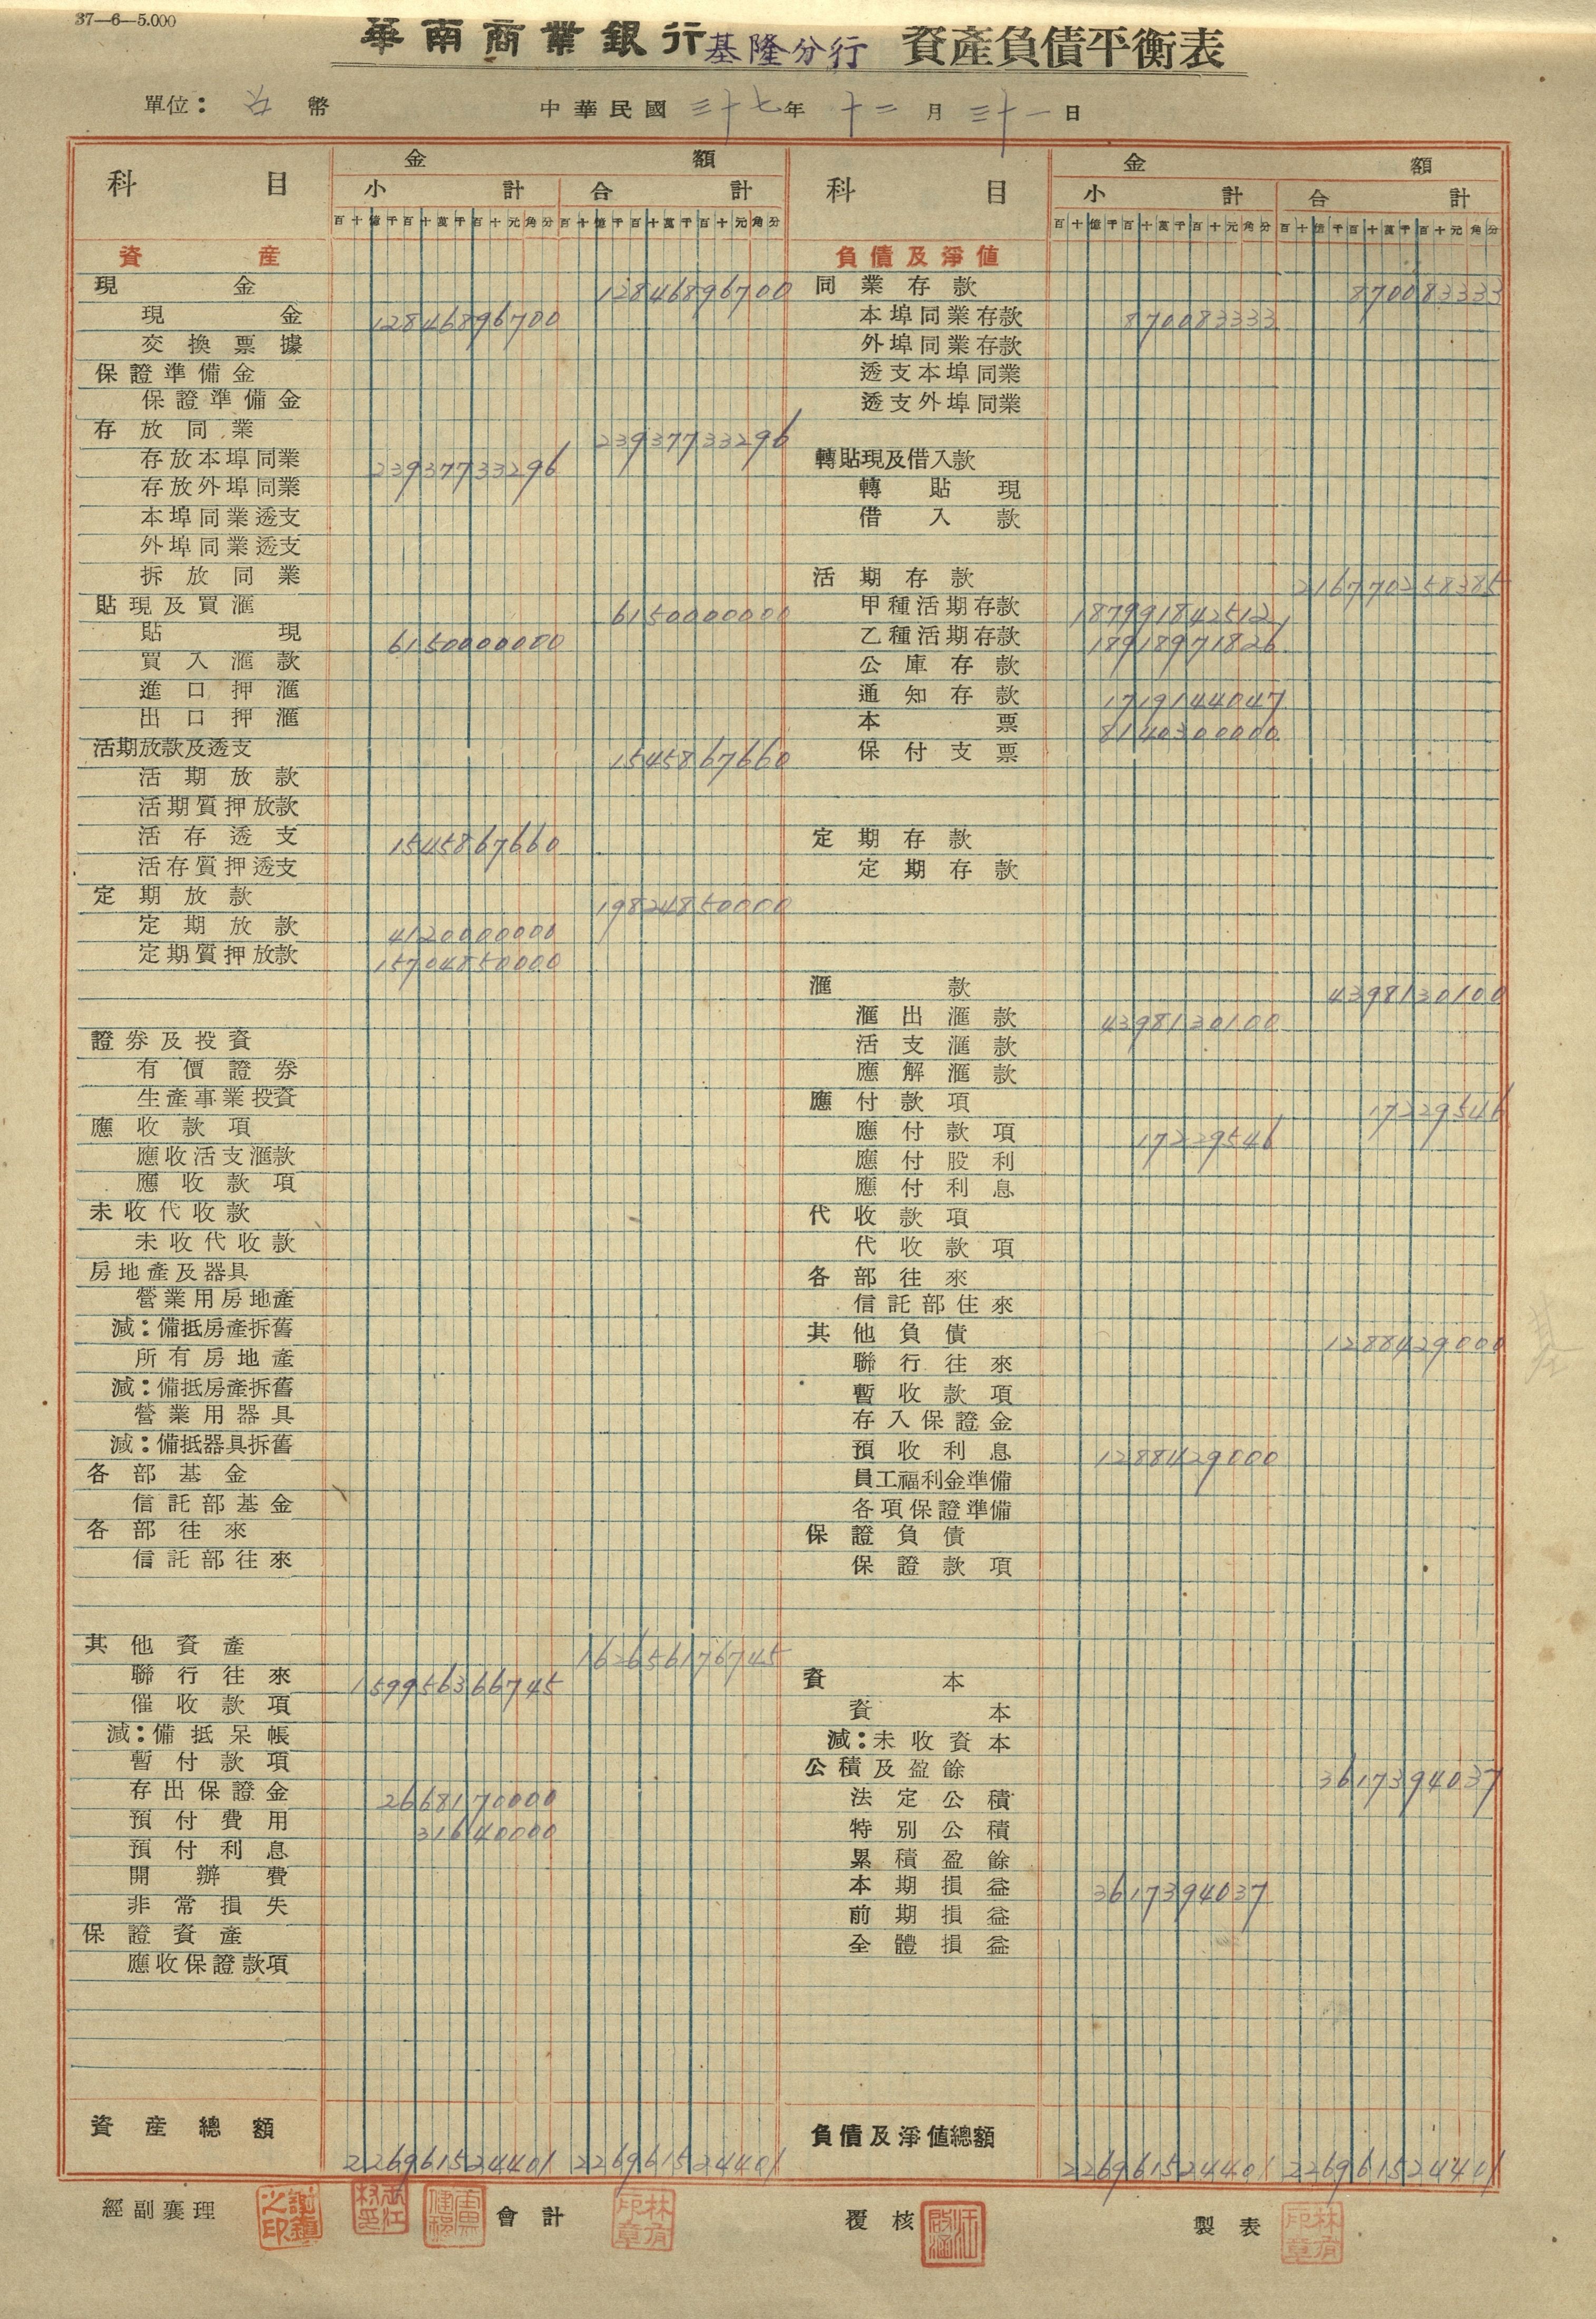 37—6—5.000
華南商業銀行基隆分行 資產負債平衡表
單位：台幣 中華民國三十七年十二月三十一日
科目 金額
小計 合計
百十億千百十萬千百十元角分 百十億千百十萬千百十元角分
資產
現金 12846896700
現金 12846896700
交換票據
保證準備金
保證準備金
存放同業 23937733296
存放本埠同業 23937733296
存放外埠同業
本埠同業透支
外埠同業透支
拆放同業
貼現及買滙 6150000000
貼現 6150000000
買入滙款
進口押滙
出口押滙
活期放款及透支 1545867660
活期放款
活期質押放款
活存透支 1545867660
活存質押透支
定期放款 19824850000
定期放款 4120000000
定期質押放款 15704850000
證券及投資
有價證券
生產事業投資
應收款項
應收活支滙款
應收款項
未收代收款
未收代收款
房地產及器具
營業用房地產
減：備抵房產拆舊
所有房地產
減：備抵房產拆舊
營業用器具
減：備抵器具拆舊
各部基金
信託部基金
各部往來
信託部往來
其他資產 162656176745
聯行往來 159956366745
催收款項
減：備抵呆帳
暫付款項
存出保證金 2668170000
預付費用 31640000
預付利息
開辦費
非常損失
保證資產
應收保證款項
資產總額 226961524401 226961524401
科目 金額
小計 合計
百十億千百十萬千百十元角分 百十億千百十萬千百十元角分
負債及淨值
同業存款 870083333
本埠同業存款 870083333
外埠同業存款
透支本埠同業
透支外埠同業
轉貼現及借入款
轉貼現
借入款
活期存款 216770258385
甲種活期存款 187991842512
乙種活期存款 18918971826
公庫存款
通知存款 1719144047
本票 8140300000
保付支票
定期存款
定期存款
滙款 4398130100
滙出滙款 4398130100
活支滙款
應解滙款
應付款項 17229546
應付款項 17229546
應付股利
應付利息
代收款項
代收款項
各部往來
信託部往來
其他負債 1288429000
聯行往來
暫收款項
存入保證金
預收利息 1288429000
員工福利金準備
各項保證準備
保證負債
保證款項
資本
資本
減：未收資本
公積及盈餘 3617394037
法定公積
特別公積
累積盈餘
本期損益 3617394037
前期損益
全體損益
負債及淨值總額 226961524401 226961524401
經副襄理 會計 覆核 製表